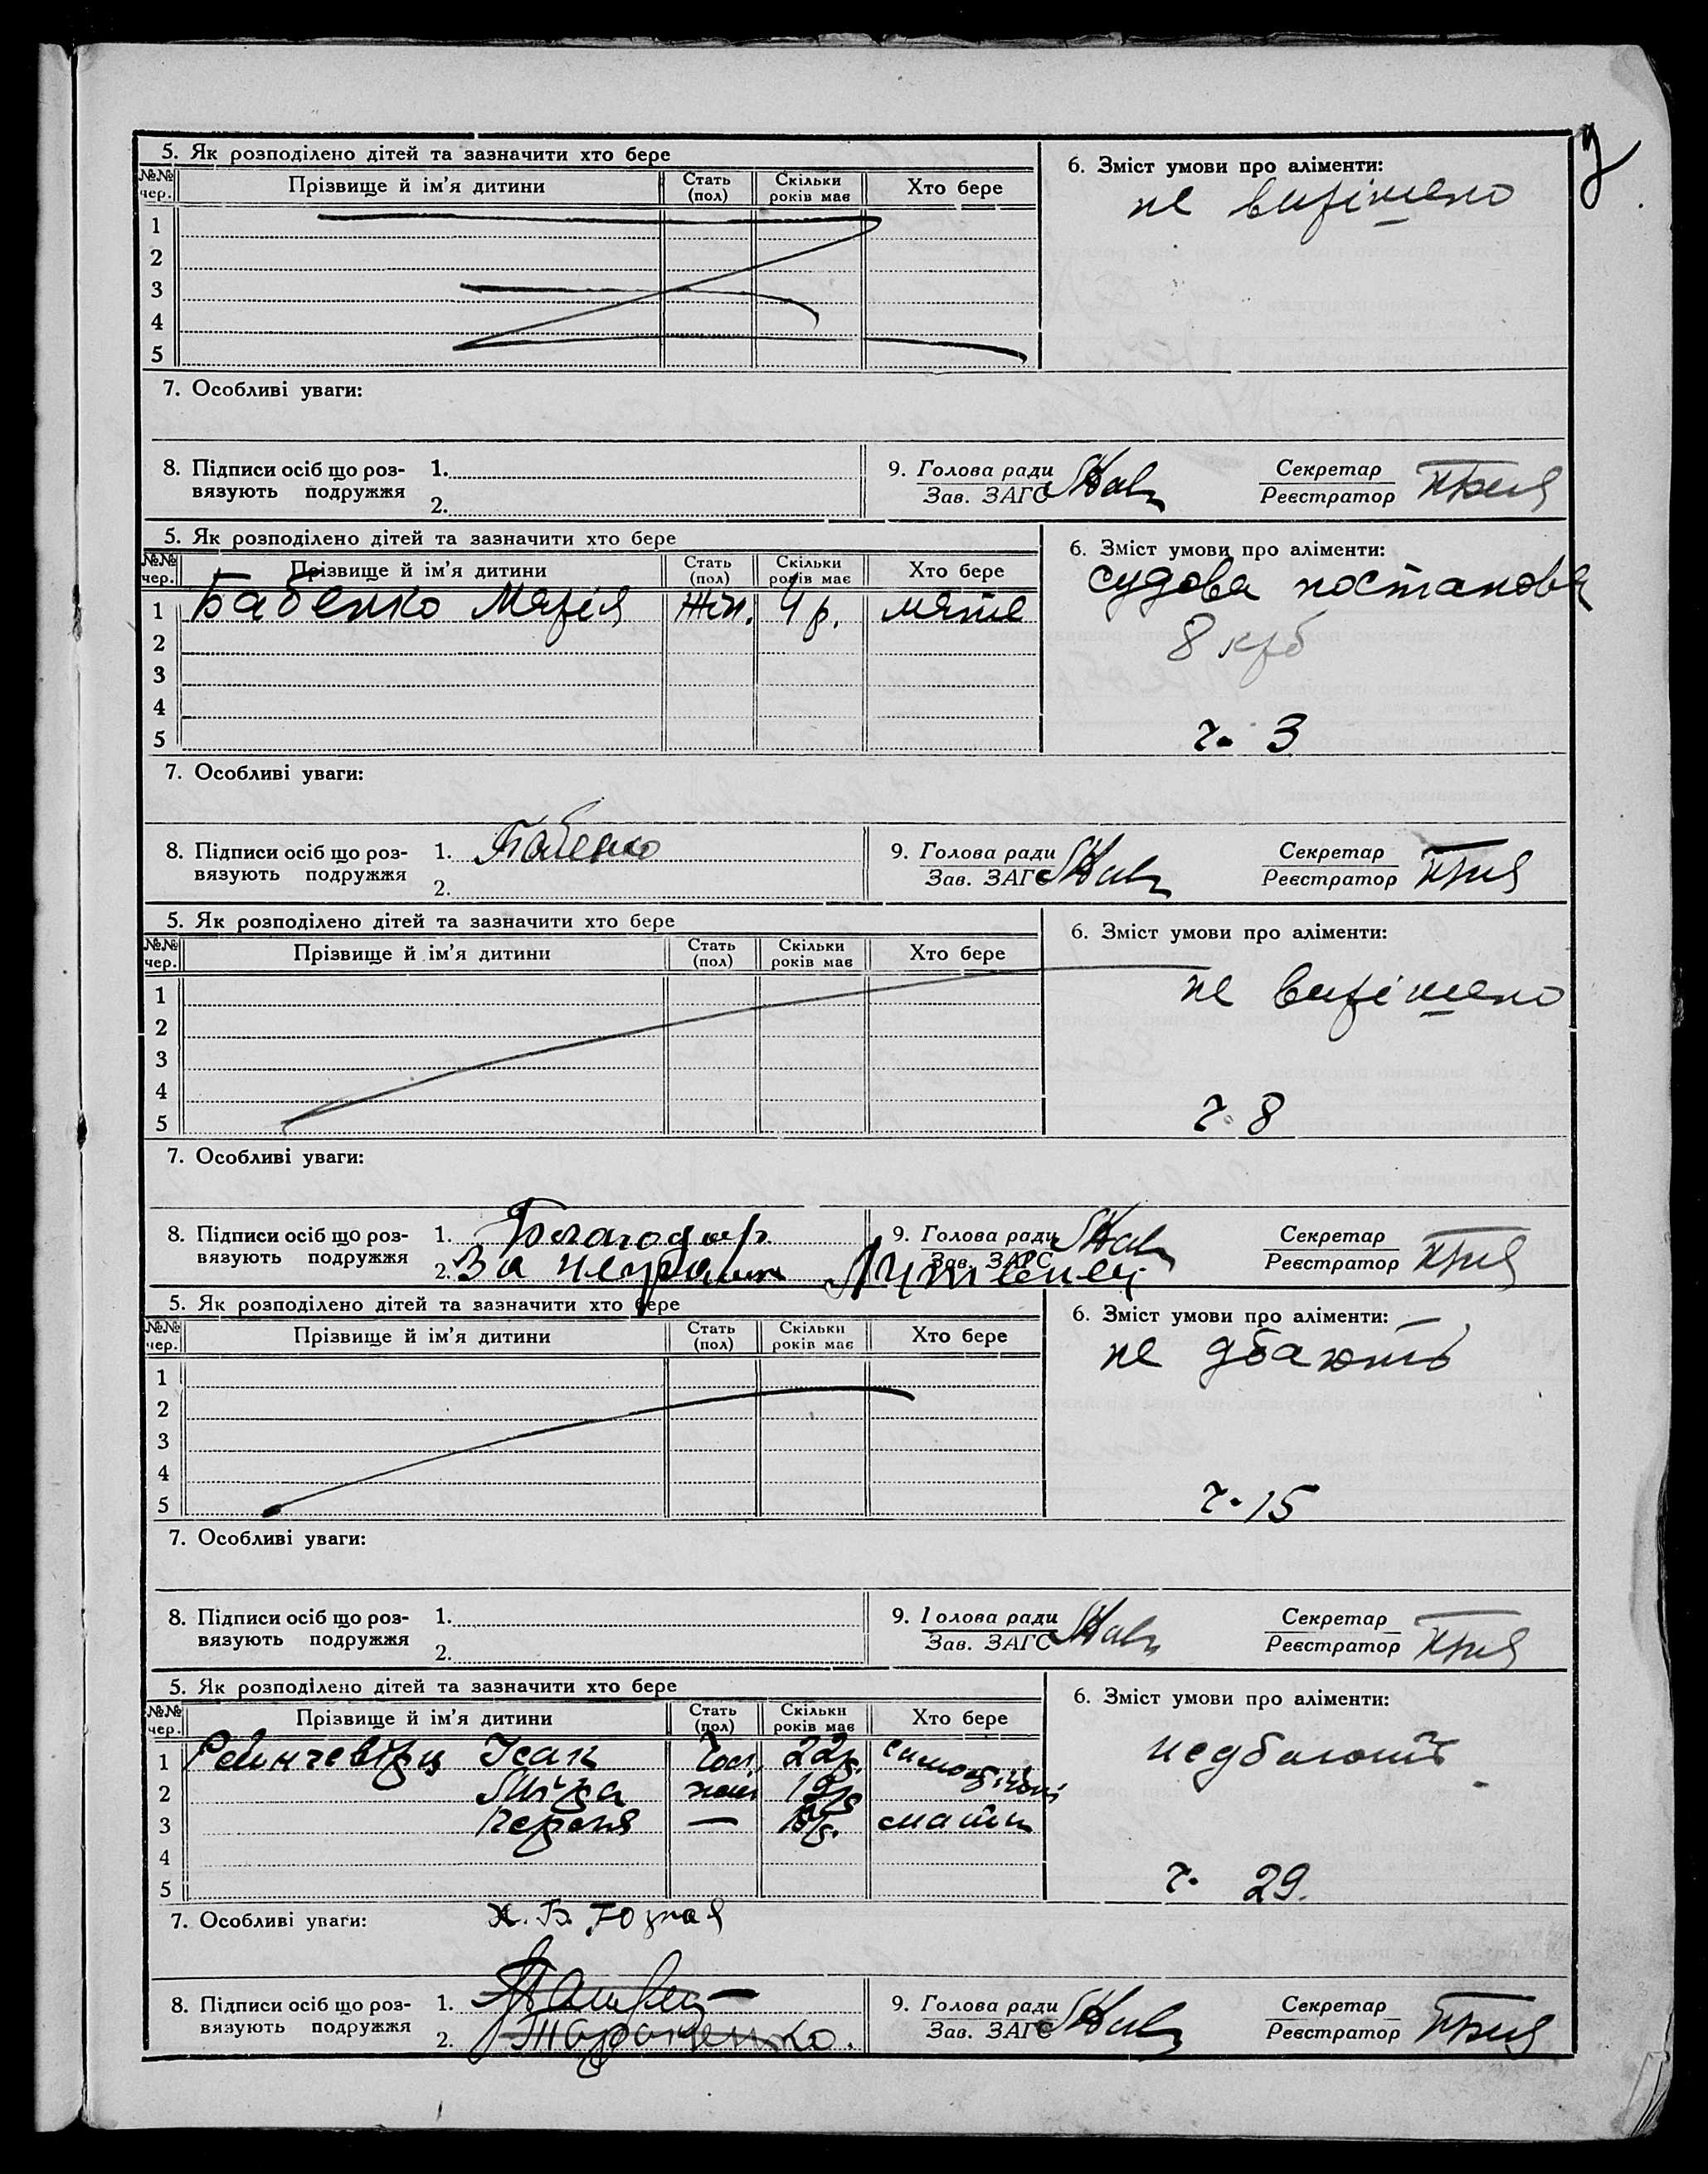 5. Як розподілено дітей та зазначити хто бере
6. Зміст умови про аліменти:
№№ чер. Прізвище й ім'я дитини Стать (пол) Скільки років має Хто бере
не вирішено
1
2
3
4
5
7. Особливі уваги:
8. Підписи осіб що роз-вязують подружжя 1. 2.
9. Голова ради Зав. ЗАГС Секретар Реєстратор
5. Як розподілено дітей та зазначити хто бере
6. Зміст умови про аліменти:
№№ чер. Прізвище й ім'я дитини Стать (пол) Скільки років має Хто бере
судова постанова
1 Бабенко Марія жін. 4 р. мати
8 крб
2
3
4
5
ч. 3
7. Особливі уваги:
8. Підписи осіб що роз-вязують подружжя 1. Бабенко 2.
9. Голова ради Зав. ЗАГС Секретар Реєстратор
5. Як розподілено дітей та зазначити хто бере
6. Зміст умови про аліменти:
№№ чер. Прізвище й ім'я дитини Стать (пол) Скільки років має Хто бере
не вирішено
1
2
3
4
5
ч. 8
7. Особливі уваги:
8. Підписи осіб що роз-вязують подружжя 1. 2. За
9. Голова ради Зав. ЗАГС Секретар Реєстратор
5. Як розподілено дітей та зазначити хто бере
6. Зміст умови про аліменти:
№№ чер. Прізвище й ім'я дитини Стать (пол) Скільки років має Хто бере
не дбають
1
2
3
4
5
ч. 15
7. Особливі уваги:
8. Підписи осіб що роз-вязують подружжя 1. 2.
9. Голова ради Зав. ЗАГС Секретар Реєстратор
5. Як розподілено дітей та зазначити хто бере
6. Зміст умови про аліменти:
№№ чер. Прізвище й ім'я дитини Стать (пол) Скільки років має Хто бере
недбають
1 Ісак 22р.
2
3 — мати
4
5
ч. 29.
7. Особливі уваги:
8. Підписи осіб що роз-вязують подружжя 1. 2.
9. Голова ради Зав. ЗАГС Секретар Реєстратор